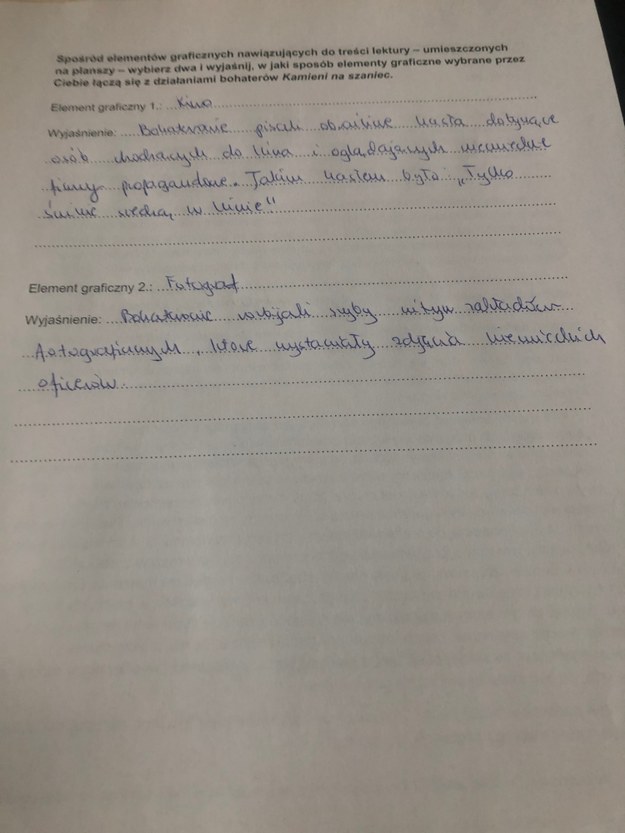 Spośród elementów graficznych nawiązujących do treści lektury – umieszczonych
na planszy – wybierz dwa i wyjaśnij, w jaki sposób elementy graficzne wybrane przez
Ciebie łączą się z działaniami bohaterów Kamieni na szaniec.
Element graficzny 1.: Kino
Wyjaśnienie: Bohaterowie pisali obraźliwe hasła dotyczące
osób chodzących do kina i oglądających niemieckie
filmy propagandowe. Takim hasłem było: „Tylko
świnie siedzą w kinie".
Element graficzny 2.: Fotograf
Wyjaśnienie: Bohaterowie rozbijali szyby witryn zakładów
fotograficznych, które wystawiały zdjęcia niemieckich
oficerów.